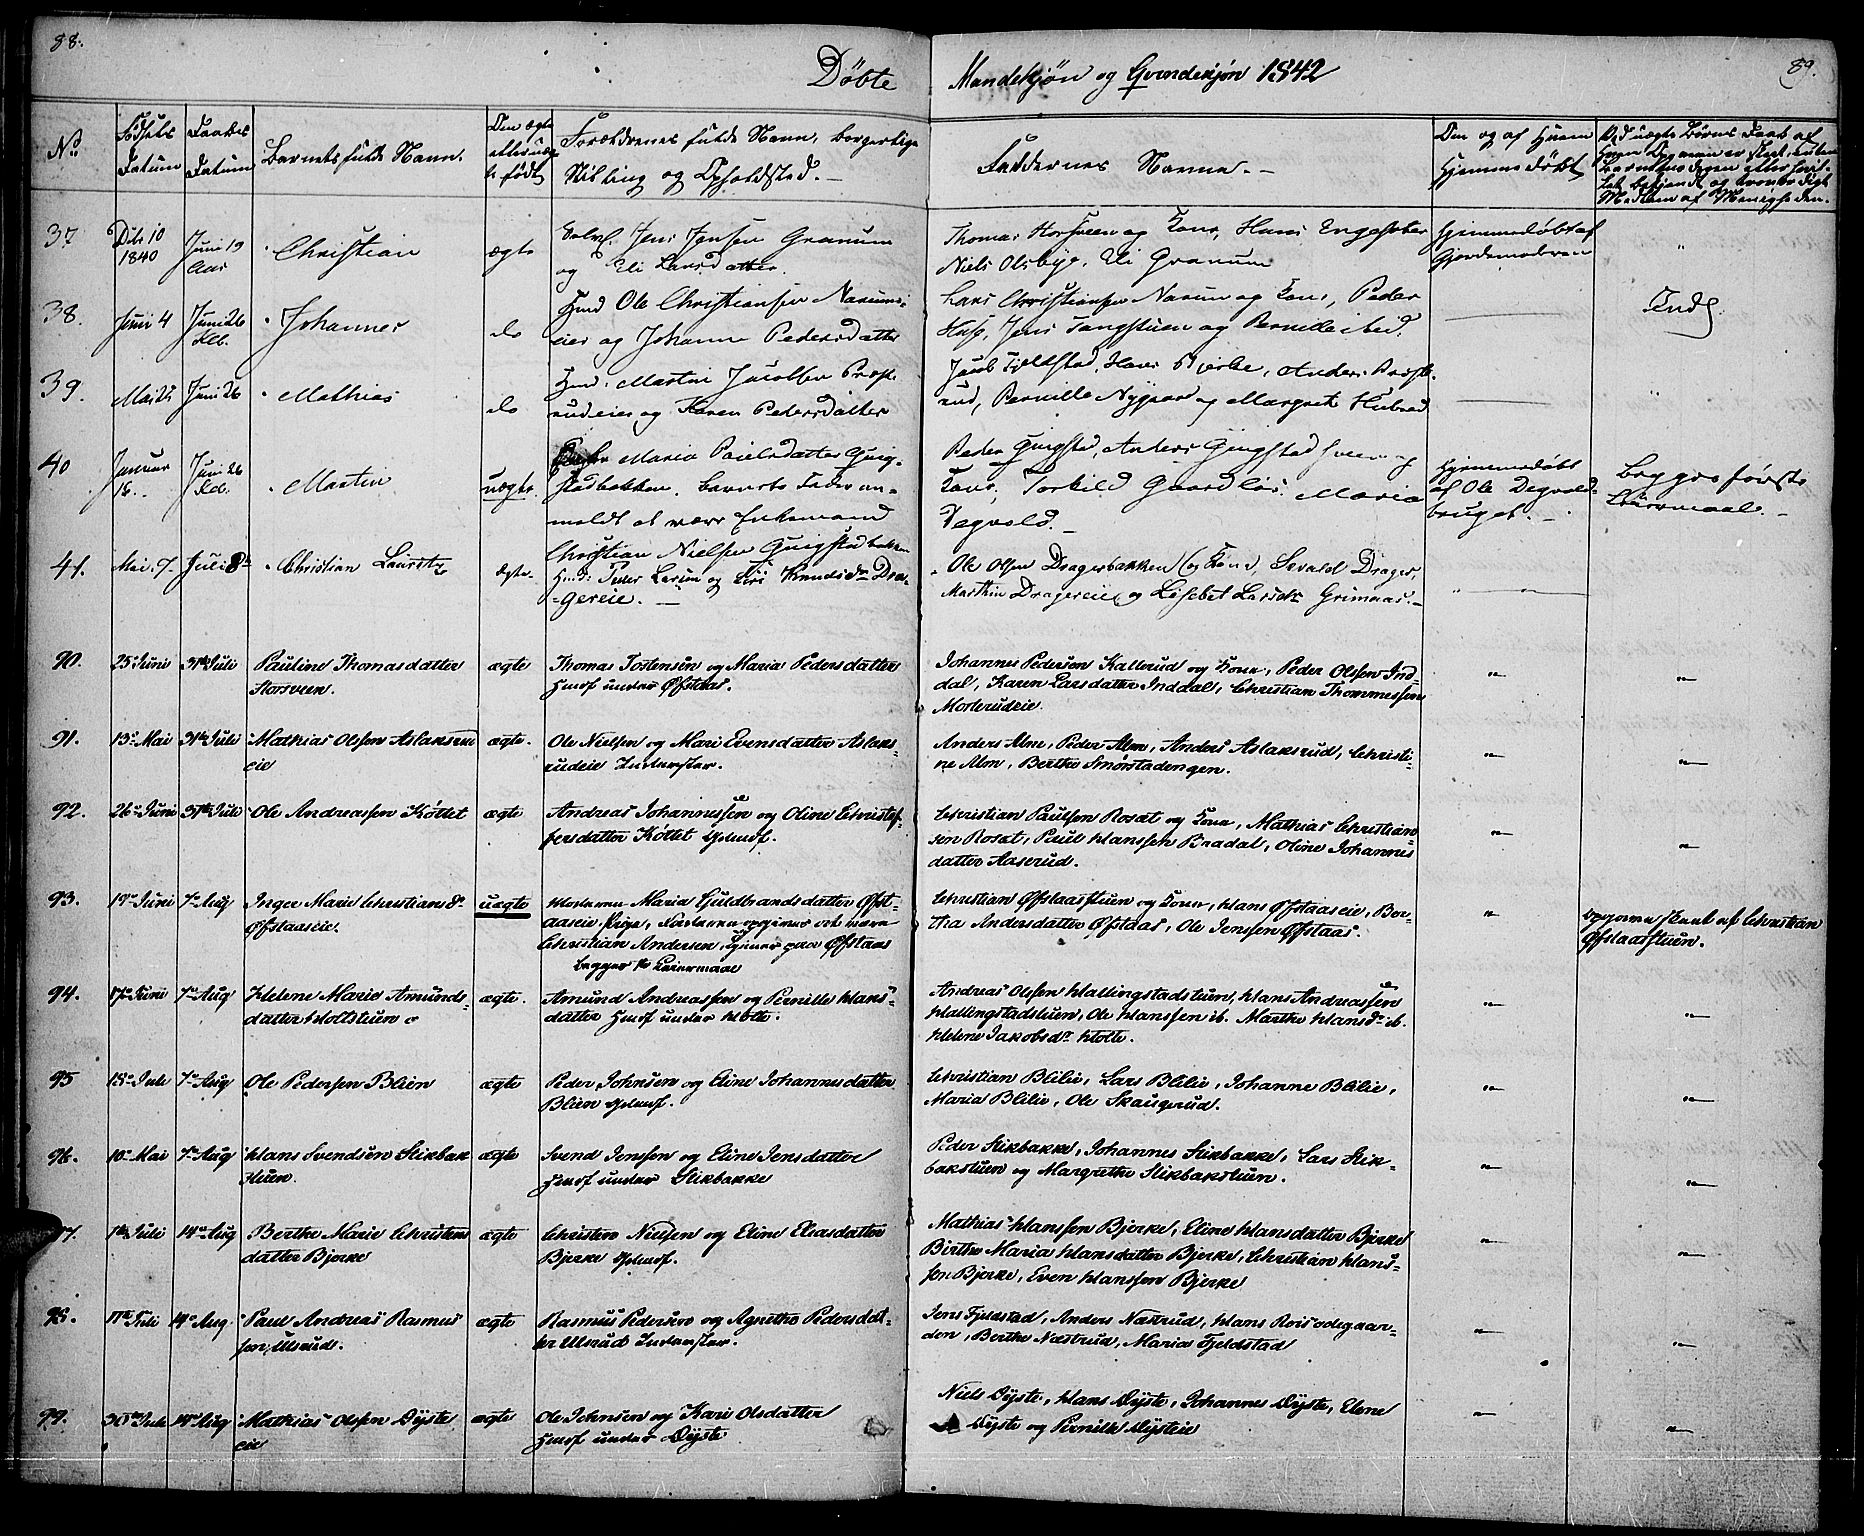 88.
Døbte
Mandekjøn og Qvindekjøn 1842
89.
No.
Fødsels Datum
Daabes Datum
Barnets fulde Navn.
Den ægte eller uægte født
Forældrenes fulde Navn, borgerlige Stilling og Opholdsted. —
Faddernes Navne. —
Om og af hvem Hjemmedøbt
37
Dcbr 10 1840
Juni 19
Christian
ægte
Jens Jensen Granum
og Eli Larsdatter.
Thomas Horsveen og Kone, Hans Engesæter
Niels Olsbye, Eli Granum
Hjemmedøbt af
Gjordemoderen
"
38.
Juni 4
Juni 26
Johannes
do
Hmd Ole Christiansen Narum-
eier og Johanne Pedersdatter
Lars Christiansen Narum og Kone, Peder
Jens Tangstuen og Pernille ibid.
39.
Mai 25
Juni 26
Mathias
do
Hmd. Martin Jacobsen Præst-
rudeier og Karen Pedersdatter
Jacob Fjeldstad, Hans Bjerke, Anders Præst-
rud, Pernille Nygaar og Margrete Hubred
"
40
Januar 16
Juni 26
Martin
uægte.
Maria Paulsdatter Gjeig-
stadbakken. Barnets Fader an-
meldt at være Enkemand
Christian Nielsen Gjeigstadbakken
Peder Gjeigstad, Anders Gjeigstadhveen og
Kone, Torkild Gaardløs. Maria
Degvold.
Hjemmedøbt
af Ole Degvold-
bruget. —
Begges første
Leiermaal. —
41.
Mai 7
Juli 8de
Christian Lauritz
Ægte
Hmd: Peder Larsen og Siri Knudsdr Dra-
-gereie. —
Ole Olsen Dragerbakken (og Kone), Sevald Drager,
Marthin Dragereie og Lisebet Larsdtr Grimaas. —
90.
25de Juni
31te Juli
Pauline Thomasdatter
Storsveen.
ægte
Thomas Tostensen og Maria Pedersdatter
Huusf under Øfstaas.
Johannes Pedersen Kallerud og Kone, Peder Olssen Ind-
dal, Karen Larsdatter Inddal, Christian Thommessen
Mosterudeie.
91.
13de Mai
31te Juli
Mathias Olssen Aslaksrud
eie
ægte.
Ole Nielsen og Mari Evensdatter Aslaks-
rudeie Inderster.
Anders Alm, Peder Alm, Anders Aslaksrud, Christi-
ne Alm, Berthe Smørstadengen.
92.
26de Juni
31te Juli
Ole Andreassen Køttet
ægte
Andreas Johannessen og Oline Christof-
fersdatter Køttet Gdmdf.
Christian Paulsen Rosæt og Kone, Mathias Christian
sen Rosæt, Paul Hanssen Bradal, Oline Johannes
datter Aaserud.
93.
19de Juni
7de Aug
Inger Marie Christiansdr
Øfstaaseie.
uægte
Moderen Maria Guldbrandsdatter Øfst-
aaseie Pige, Faderen opgives at være
Christian Andersen Tjener paa Øfstaas
begges 1te Leiermaal
Christian Øfstaasstuen og Kone, Hans Øfstaaseie, Ber-
tha Andersdatter Øfstaas, Ole Jenssen Øfstaas.
opgivne Skeet af Christian
Øfstaasstuen.
94.
17de Juni
7de Aug
Helene Marie Amunds-
datter Holtstuen
ægte.
Amund Andreassen og Pernille Hans-
datter Huusf under Holte.
Andreas Olssen Hallingstadstuen, Hans Andreassen
Hallingstadstuen, Ole Hanssen ib. Marthe Hansdr ib.
Helene Jakobsdr Holte.
95
18de Juli
7de Aug
Ole Pedersen Blien
ægte
Peder Johnsen og Eline Johannesdatter
Blien Gdmdf.
Christian Blilie, Lars Blilie, Johanne Blilie,
Maria Blilie, Ole Skaugerud.
96.
10de Mai
7de Aug
Hans Svendsen Stikbak
stuen.
ægte
Svend Jenssen og Eline Jensdatter
Huusf under Stikbakke
Peder Stikbakke, Johannes Stikbakke, Lars Stik-
bakstuen og Margrethe Stikbakstuen.
97.
1te Juli
14de Aug
Berthe Marie Christens
datter Bjerke
ægte
Christen Nielsen og Eline Eliasdatter
Bjerke Gdmdf.
Mathias Hanssen Bjerke, Eline Hansdatter Bjerke
Birthe Maria Hansdatter Bjerke, Christian Hans-
sen Bjerke, Even Hanssen Bjerke
98.
17de Juli
14de Aug.
Paul Andreas Rasmus
sen Ulsrud.
ægte
Rasmus Pedersen og Agnethe Pedersdat-
ter Ulsrud Inderster.
Jens Fjeldstad, Anders Næstrud, Hans Roisødegaar-
den, Berthe Næstrud, Maria Fjeldstad
99.
30te Juli
14de Aug
Mathias Olssen Dyste
eie
ægte
Ole Johnsen og Kari Olsdatter
Huusf under Dyste
Niels Dyste, Hans Dyste, Johannes Dyste, Elene
Dyste og Pernille Dysteie